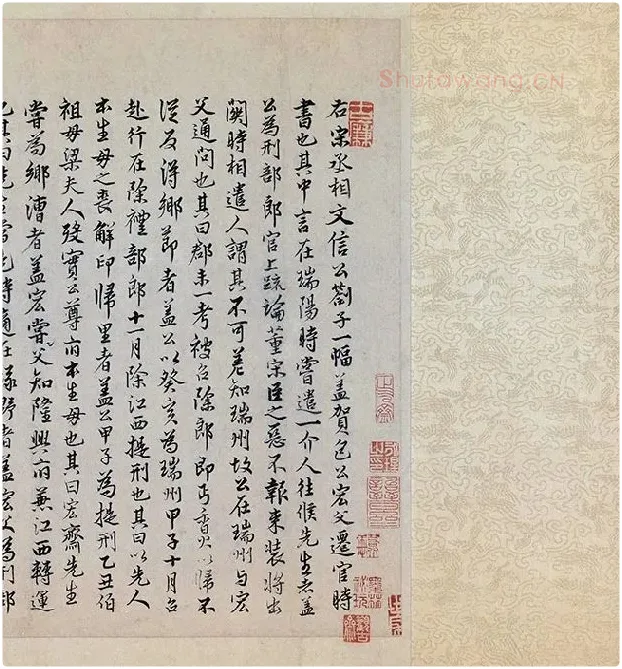 右宋丞相文信公劄子一幅盖賀包公宏父遷官時
書也其中言在瑞陽時嘗遣一介人往候先生者盖
公為刑部郎官上疏論董宋臣之惡不報束装將出
關時相遣人謂其不可差知瑞州故公在瑞州与宏
父通問也其曰郡未一考被召除郎即丐香火以歸不
從及得鄉節者盖公以癸亥為瑞州甲子十月召
赴行在除禮部郎十一月除江西提刑也其曰以先人
本生母之喪解印歸里者盖公甲子為提刑乙丑伯
祖母梁夫人殁實公尊府本生母也其曰宏齋先生
嘗為鄉漕者盖宏父嘗知隆興府兼江西轉運
Shufawang.CN